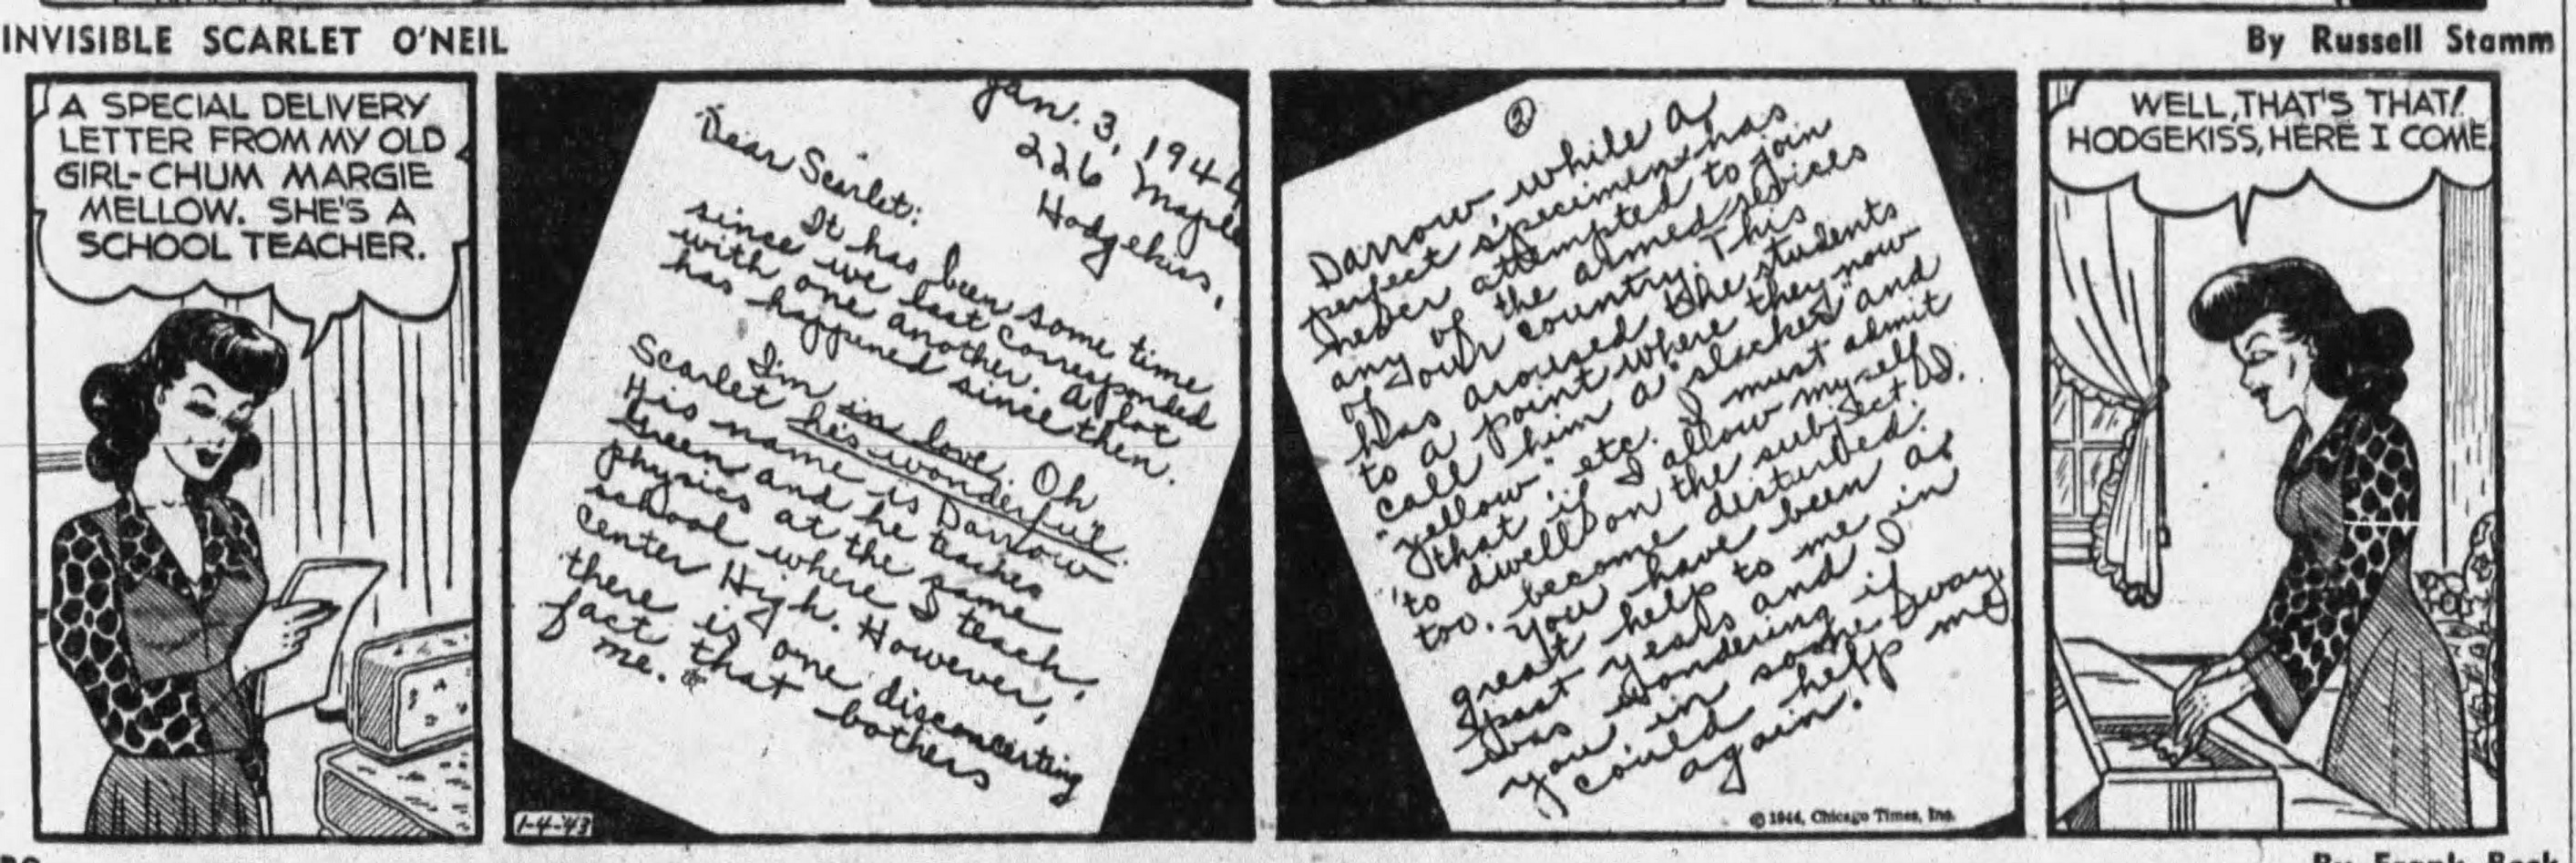 INVISIBLE SCARLET O'NEIL
By Russell Stamm
A SPECIAL DELIVERY
LETTER FROM MY OLD
GIRL-CHUM MARGIE
MELLOW. SHE'S A
SCHOOL TEACHER.
Jan. 3, 1944
226 Maple
Hodgekiss,
Dear Scarlet:
It has been some time
since we last corresponded
with one another. A lot
has happened since then.
I'm in love. Oh
Scarlet he's wonderful.
His name is Darrow
Green and he teaches
physics at the same
school where I teach,
Center High. However,
there is one disconcerting
fact that bothers
me.
1-4-43
2
Darrow, while a
perfect specimen has
never attempted to join
any of the armed services
of our country. This
has aroused the students
to a point where they now
call him a "slacker" and
"yellow", etc. I must admit
that if I allow myself
to dwell on the subject I,
too, become disturbed.
You have been a
great help to me in
past years and I
was wondering if
you in some way
could help me
again.
© 1944, Chicago Times, Inc.
WELL, THAT'S THAT!
HODGEKISS, HERE I COME